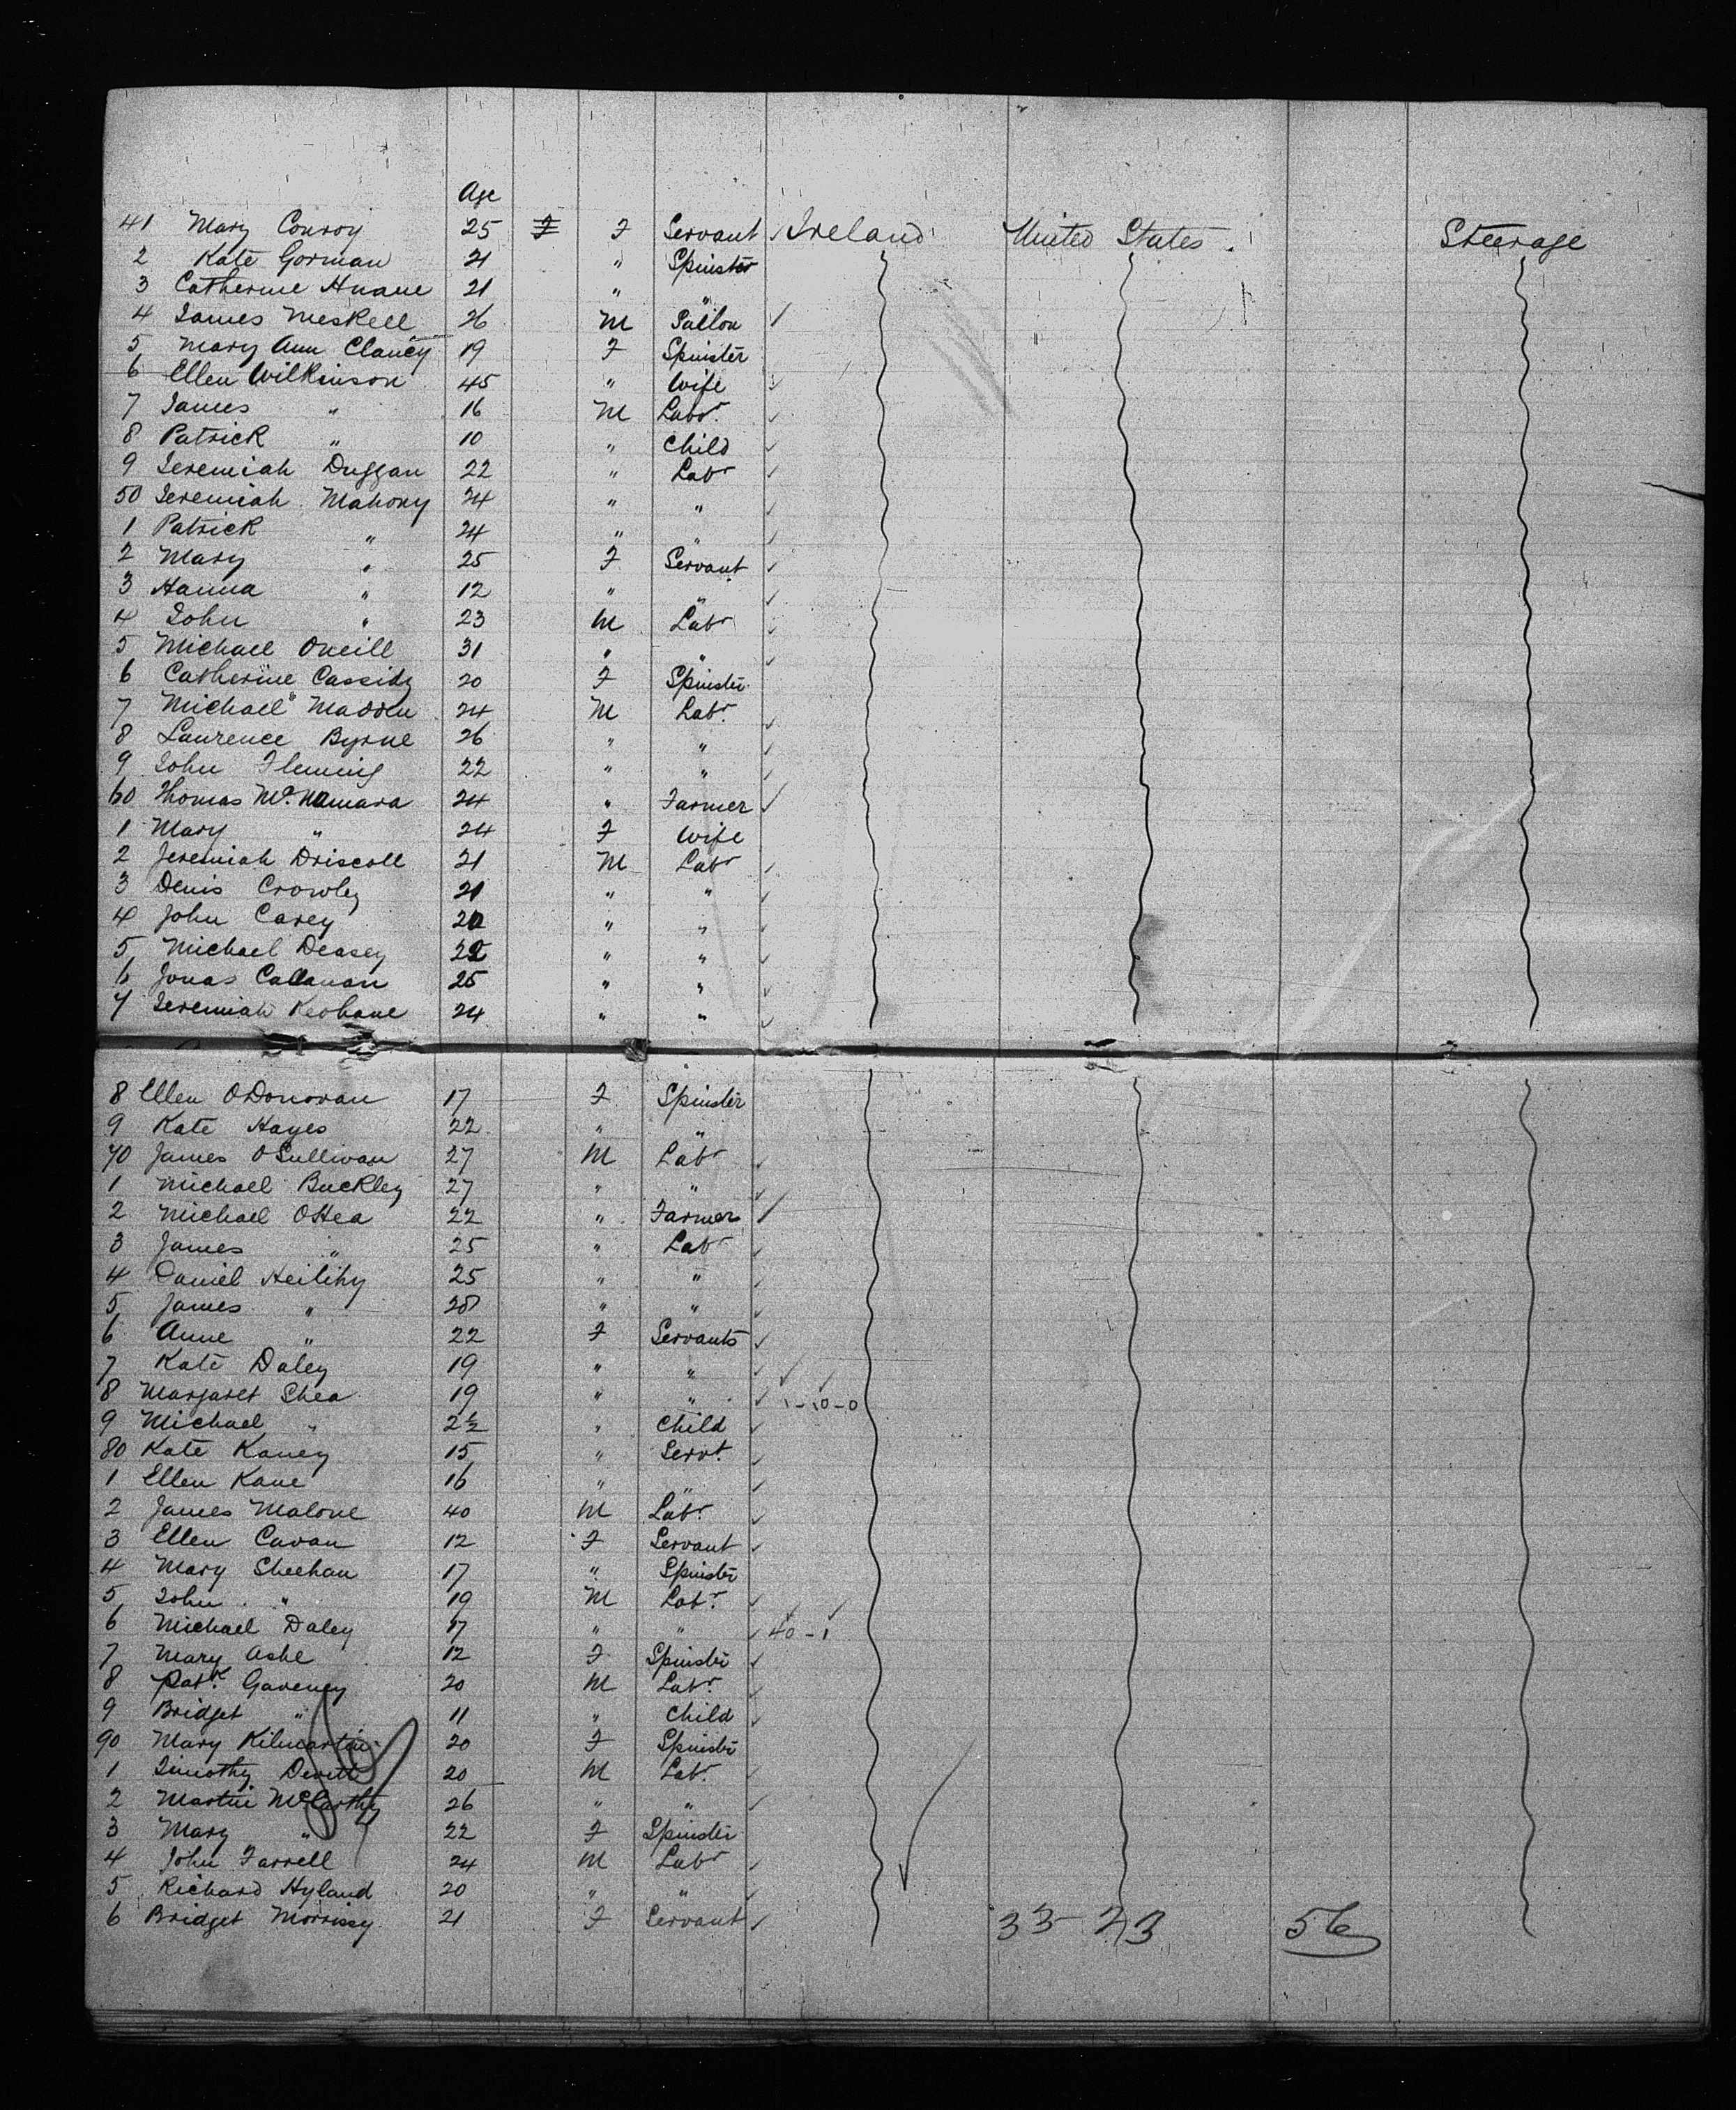 Age
41 Mary Conroy 25 F F Servant Ireland United States. Steerage
2 Kate Gorman 21 " Spinster
3 Catherine Huane 21 " "
4 James Meskell 26 M
5 Mary Ann Clancy 19 F Spinster
6 Ellen Wilkinson 45 " Wife
7 James " 16 M Labr.
8 Patrick " 10 " Child
9 Jeremiah Duggan 22 " Labr
50 Jeremiah Mahony 24 " "
1 Patrick " 24 " "
2 Mary " 25 F Servant
3 Hanna " 12 " "
4 John " 23 M Labr
5 Michael Oneill 31 " "
6 Catherine Cassidy 20 F Spinster
7 Michael Madden 24 M Labr.
8 Laurence Byrne 26 " "
9 John Fleming 22 " "
60 Thomas McNamara 24 " Farmer
1 Mary " 24 F Wife
2 Jeremiah Driscoll 21 M Labr
3 Denis Crowley 21 " "
4 John Carey " "
5 Michael Deasey 22 " "
6 Jonas Callanan 25 " "
7 Jeremiah Keohane 24 " "
8 Ellen ODonovan 17 F Spinster
9 Kate Hayes 22 " "
70 James OSullivan 27 M Labr
1 Michael Buckley 27 " "
2 Michael OHea 22 " Farmer
3 James " 25 " Labr
4 Daniel Heilihy 25 " "
5 James " " "
6 Anne " 22 F Servants
7 Kate Daley 19 " "
8 Margaret Shea 19 " " 1-10-0
9 Michael " 2½ " Child
80 Kate Kaney 15 " Servt.
1 Ellen Kane 16 " "
2 James Malone 40 M Labr.
3 Ellen Cavan 12 F Servant
4 Mary Sheehan 17 " Spinster
5 John " 19 M Labr.
6 Michael Daley 17 " " 40-1
7 Mary Ashe 12 F Spinster
8 Patk. Gaveney 20 M Labr.
9 Bridget " 11 " Child
90 Mary Kilmartin 20 F Spinster
1 Timothy Devitt 20 M Labr.
2 Martin McCarthy 26 " "
3 Mary " 22 F Spinster
4 John Farrell 24 M Labr
5 Richard Hyland 20 " "
6 Bridget Morrissy 21 F Servant 33-23 56